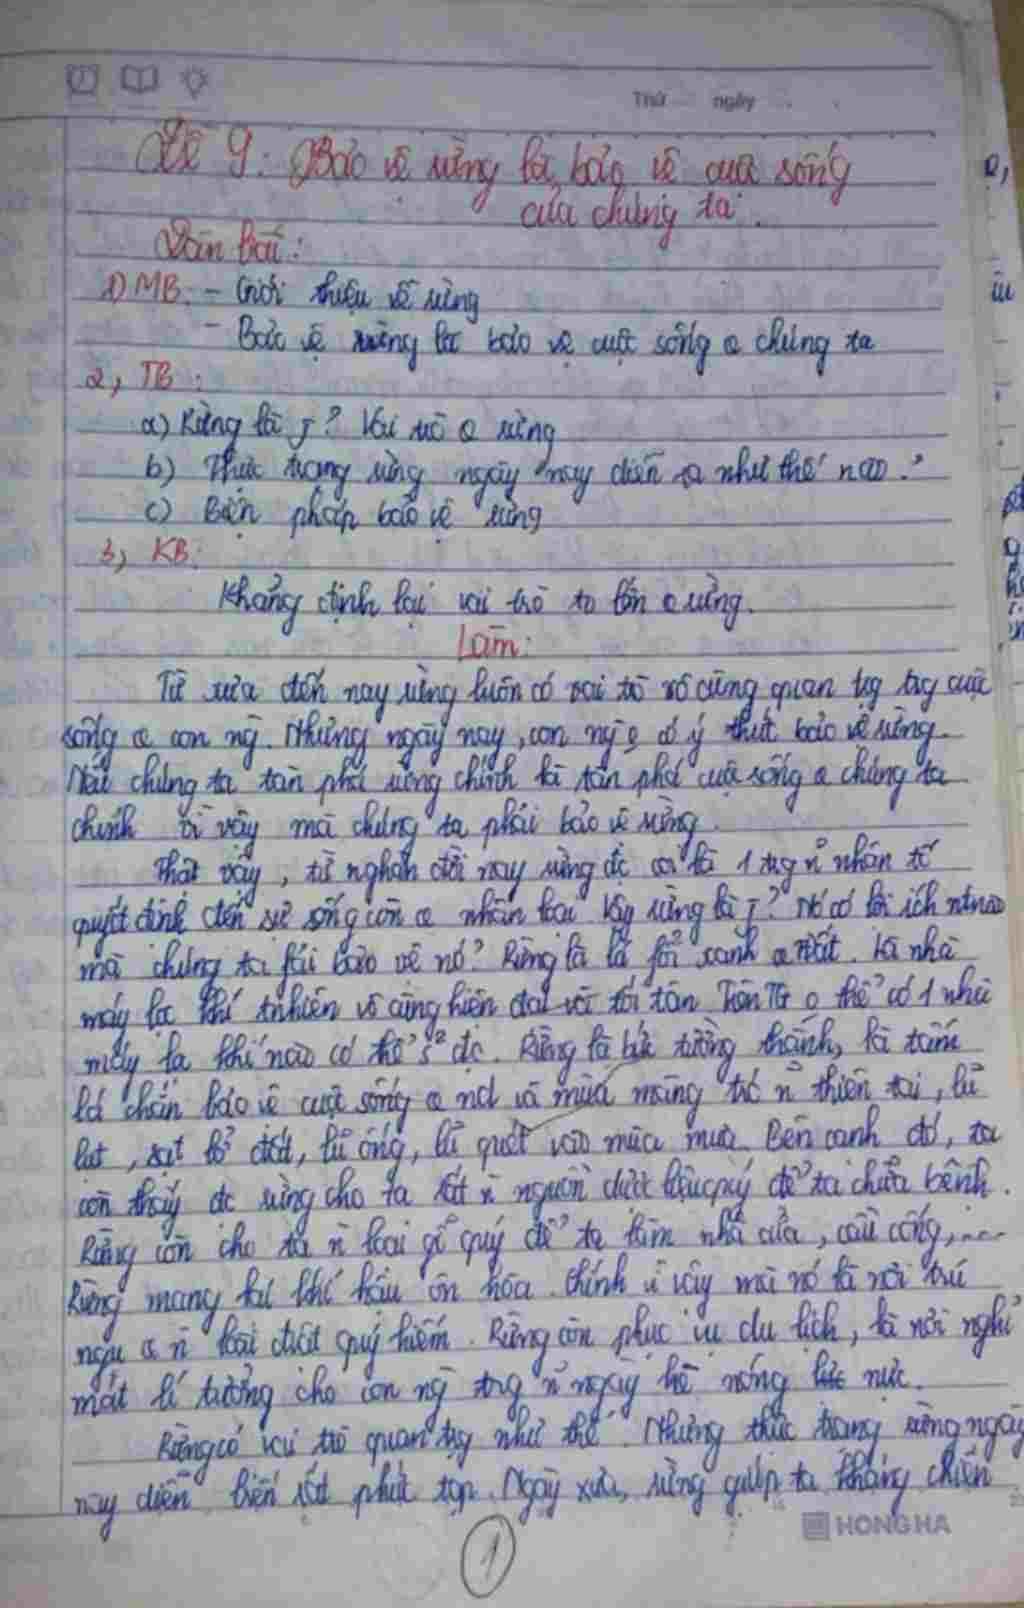 Thứ ngày
Đề 9: Bảo vệ rừng là bảo vệ cuộc sống
của chúng ta.
Dàn bài:
1) MB: - Giới thiệu về rừng
- Bảo vệ rừng là bảo vệ cuộc sống c chúng ta
2, TB:
a) Rừng là j? Vai trò c rừng
b) Thực trạng rừng ngày nay diễn ra như thế nào?
c) Biện pháp bảo vệ rừng
3, KB:
Khẳng định lại vai trò to lớn c rừng.
Làm:
Từ xưa đến nay rừng luôn có vai trò vô cùng quan trg trg cuộc
sống c con ng. Nhưng ngày nay, con ng o có ý thức bảo vệ rừng.
Nếu chúng ta tàn phá rừng chính là tàn phá cuộc sống c chúng ta
chính vì vậy mà chúng ta phải bảo vệ rừng.
Thật vậy, từ nghàn đời nay rừng đc coi là 1 trg n~ nhân tố
quyết định đến sự sống còn c nhân loại. Vậy rừng là j? Nó có lợi ích ntnào
mà chúng ta fải bảo vệ nó? Rừng là lá fổi xanh c trái đất. Là nhà
máy lọc khí tự nhiên vô cùng hiện đại và tối tân. Trên TG o thể có 1 nhà
máy lọc khí nào có thể s² đc. Rừng là bức tường thành, là tấm
lá chắn bảo vệ cuộc sống c nd và mùa màng trc n~ thiên tai, lũ
lụt, sạt lở đất, lũ ống, lũ quét vào mùa mưa. Bên cạnh đó, ta
còn thấy đc rừng cho ta rất n~ nguồn dược liệu quý để ta chữa bệnh.
Rừng còn cho ta n~ loại gỗ quý để ta làm nhà cửa, cầu cống,....
Rừng mang lại khí hậu ôn hòa. Chính vì vậy mà nó là nơi trú
ngụ c n~ loài đvật quý hiếm. Rừng còn phục vụ du lịch, là nơi nghỉ
mát lí tưởng cho con ng trg n~ ngày hè nóng nực.
Rừng có vai trò quan trg như thế. Nhưng thực trạng rừng ngày
nay diễn biến rất phức tạp. Ngày xưa, rừng giúp ta kháng chiến
HONG HA
1